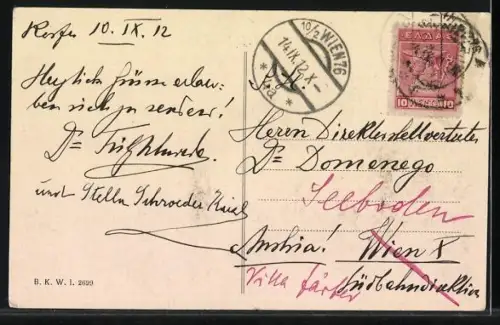 Korfu 10. IX. 12
Herzliche Grüsse erlau-
ben sich zu senden!
Dr
und Stella Schroeder
B. K. W. I. 2699
10/2 WIEN 76
14 IX 12 X
ΕΛΛΑΣ
10 10
Herrn Direktorstellvertreter
Dr Domenego
Seeboden
Austria! Wien X
Villa
Südbahndirektion